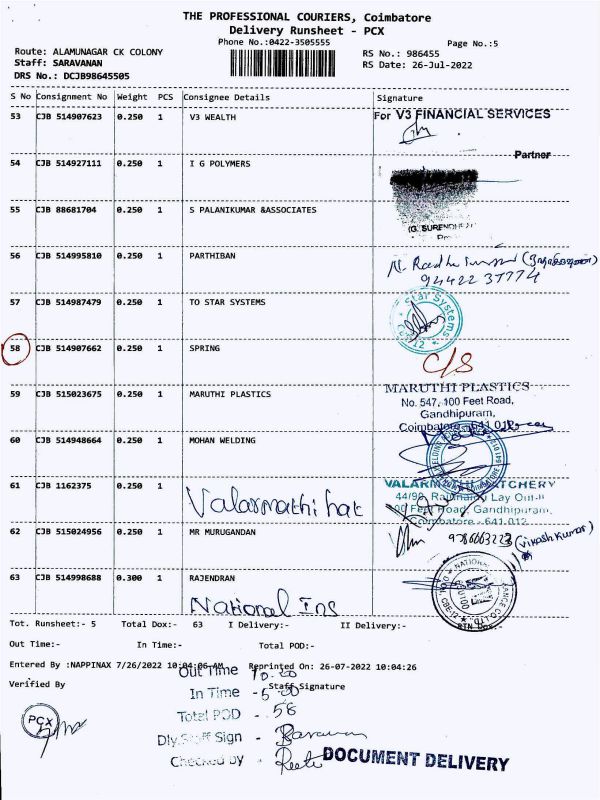 THE PROFESSIONAL COURIERS, Coimbatore
Delivery Runsheet - PCX
Phone No.:0422-3505555
Page No.:5
Route: ALAMUNAGAR CK COLONY
RS No.: 986455
Staff: SARAVANAN
RS Date: 26-Jul-2022
DRS No.: DCJB98645505
S No Consignment No Weight PCS Consignee Details Signature
53 CJB 514907623 0.250 1 V3 WEALTH
For V3 FINANCIAL SERVICES
Partner
54 CJB 514927111 0.250 1 I G POLYMERS
55 CJB 88681704 0.250 1 S PALANIKUMAR &ASSOCIATES
56 CJB 514995810 0.250 1 PARTHIBAN
9442237774
57 CJB 514987479 0.250 1 TO STAR SYSTEMS
Star Systems
58 CJB 514907662 0.250 1 SPRING
C/S
59 CJB 515023675 0.250 1 MARUTHI PLASTICS
MARUTHI PLASTICS
No. 547, 100 Feet Road,
Gandhipuram,
Coimbatore - 641 012
60 CJB 514948664 0.250 1 MOHAN WELDING
61 CJB 1162375 0.250 1 Valarmathi hat
VALARMATHI HATCHERY
44/98, Lay Out-II
100 Feet Road, Gandhipuram,
Coimbatore - 641 012
62 CJB 515024956 0.250 1 MR MURUGANDAN
(Vikash Kumar)
63 CJB 514998688 0.300 1 RAJENDRAN
National Ins
Tot. Runsheet:- 5 Total Dox:- 63 I Delivery:- II Delivery:- RTN Dox:-
Out Time:- In Time:- Total POD:-
Entered By :NAPPINAX 7/26/2022 10:04:06 AM Reprinted On: 26-07-2022 10:04:26
Verified By Staff Signature
Out Time 10.20
In Time -
Total POD - 58
Dly.Staff Sign -
Checked by -
PCX
DOCUMENT DELIVERY